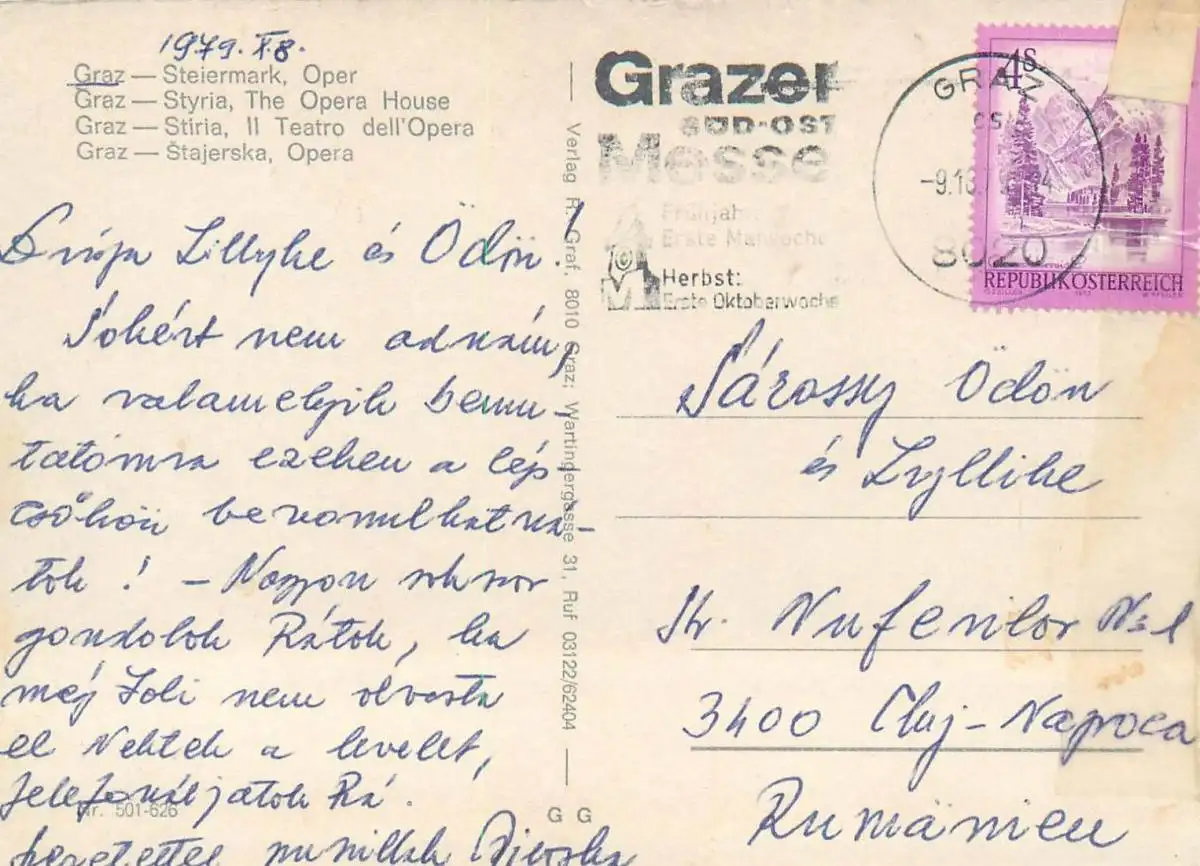 1979. X. 8.
Graz — Steiermark, Oper
Graz — Styria, The Opera House
Graz — Stiria, Il Teatro dell'Opera
Graz — Štajerska, Opera
Drága Lillyke és Ödön!
Sokért nem adnám,
ha valamelyik bemu-
tatómra ezeken a lép
csőkön bevonulhatná-
tok! – Nagyon sokszor
gondolok Rátok, ha
még Zoli nem olvasta
el Nektek a levelet,
telefonáljatok Rá.
Nr. 501-626
szeretettel
Verlag R. Graf, 8010 Graz; Wartingergasse 31, Ruf 03122/62404
G G
Grazer
SÜD-OST
Messe
Frühjahr:
Erste Maiwoche
Herbst:
Erste Oktoberwoche
GRAZ
-9.10.
8020
4S
REPUBLIK ÖSTERREICH
Sárossy Ödön
és Lyllike
Str. Nufenilor N=1
3400 Cluj-Napoca
Rumänien